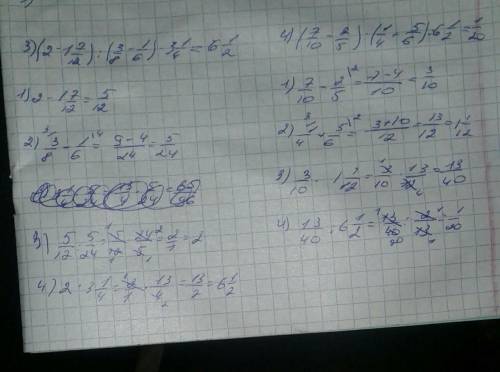 3) (2 - 1 7/12) : (3/8 - 1/6) · 3 1/4 = 6 1/2
1) 2 - 1 7/12 = 5/12
2) 3/8 - 1/6 = (9 - 4)/24 = 5/24
3) 5/12 : 5/24 = 5/12 · 24/5 = 2/1 = 2
4) 2 · 3 1/4 = 2/1 · 13/4 = 13/2 = 6 1/2
4) (7/10 - 2/5) · (1/4 + 5/6) : 6 1/2 = 1/20
1) 7/10 - 2/5 = (7 - 4)/10 = 3/10
2) 1/4 + 5/6 = (3 + 10)/12 = 13/12 = 1 1/12
3) 3/10 · 1 1/12 = 3/10 · 13/12 = 13/40
4) 13/40 : 6 1/2 = 13/40 · 2/13 = 1/20